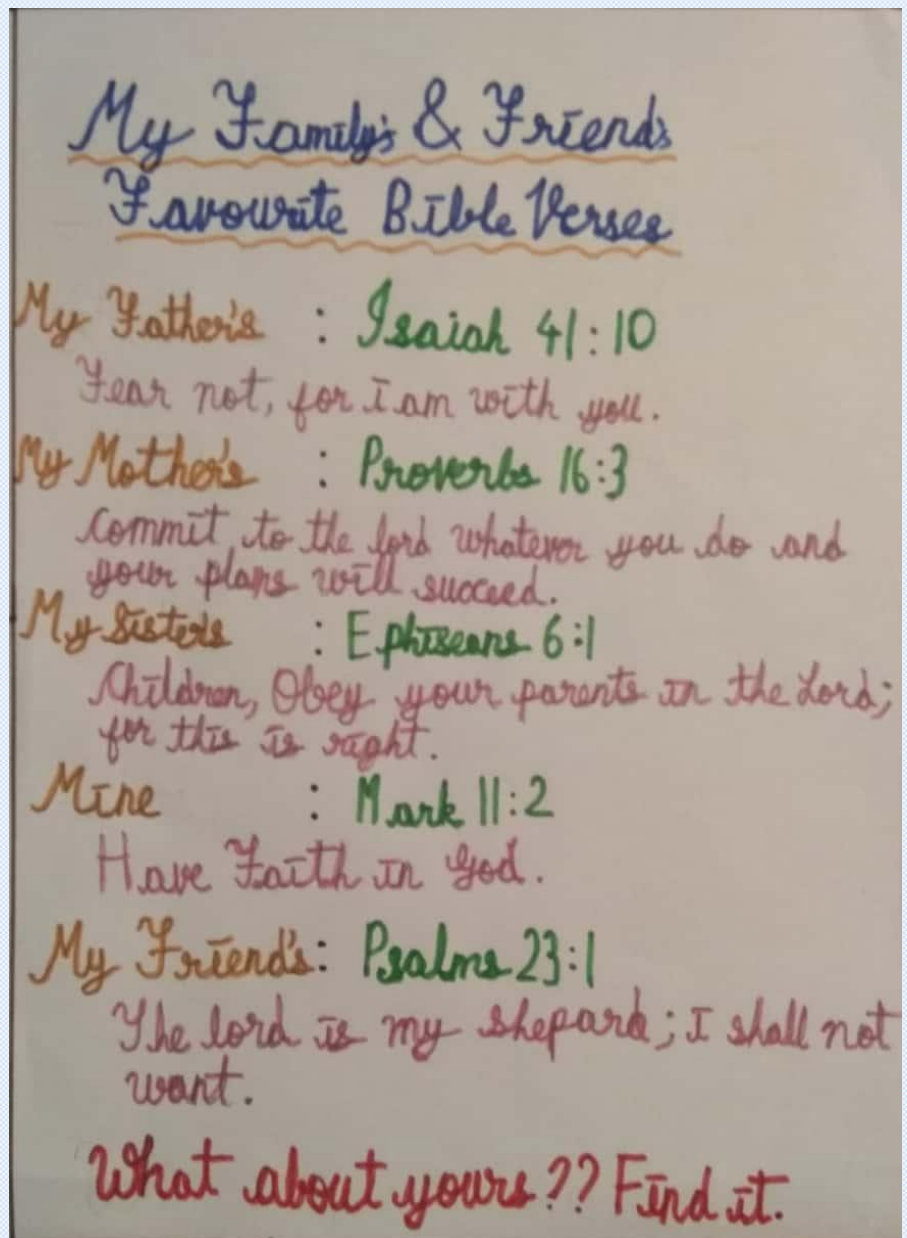 My Family's & Friend's
Favourite Bible Verses
My Father's : Isaiah 41:10
Fear not, for I am with you.
My Mother's : Proverbs 16:3
Commit to the lord whatever you do and
your plans will succeed.
My Sister's : Ephiseans 6:1
Children, Obey your parents in the Lord;
for this is right.
Mine : Mark 11:2
Have Faith in God.
My Friend's: Psalms 23:1
The lord is my shepard; I shall not
want.
What about yours?? Find it.